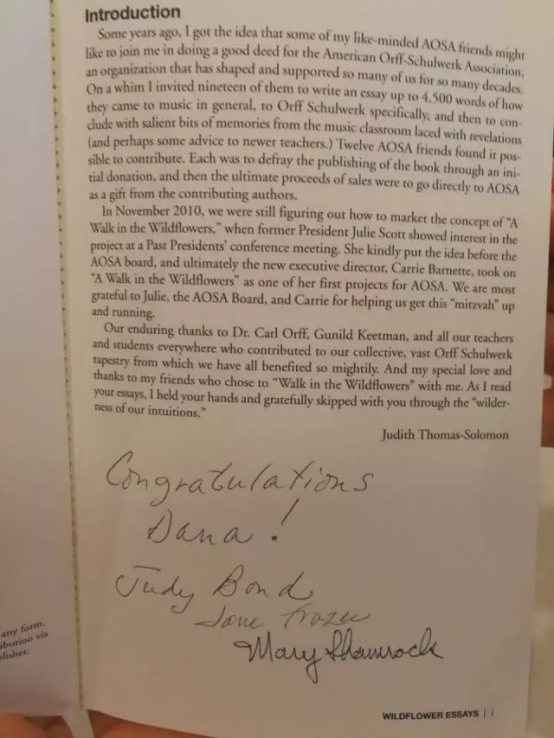 Introduction
Some years ago, I got the idea that some of my like-minded AOSA friends might
like to join me in doing a good deed for the American Orff-Schulwerk Association,
an organization that has shaped and supported so many of us for so many decades.
On a whim I invited nineteen of them to write an essay up to 4,500 words of how
they came to music in general, to Orff Schulwerk specifically, and then to con-
clude with salient bits of memories from the music classroom laced with revelations
(and perhaps some advice to newer teachers.) Twelve AOSA friends found it pos-
sible to contribute. Each was to defray the publishing of the book through an ini-
tial donation, and then the ultimate proceeds of sales were to go directly to AOSA
as a gift from the contributing authors.
In November 2010, we were still figuring out how to market the concept of "A
Walk in the Wildflowers," when former President Julie Scott showed interest in the
project at a Past Presidents' conference meeting. She kindly put the idea before the
AOSA board, and ultimately the new executive director, Carrie Barnette, took on
"A Walk in the Wildflowers" as one of her first projects for AOSA. We are most
grateful to Julie, the AOSA Board, and Carrie for helping us get this "mitzvah" up
and running.
Our enduring thanks to Dr. Carl Orff, Gunild Keetman, and all our teachers
and students everywhere who contributed to our collective, vast Orff Schulwerk
tapestry from which we have all benefited so mightily. And my special love and
thanks to my friends who chose to "Walk in the Wildflowers" with me. As I read
your essays, I held your hands and gratefully skipped with you through the "wilder-
ness of our intuitions."
Judith Thomas-Solomon
Congratulations
Dana!
Judy Bond
Jane Frazee
Mary Shamrock
any form,
ibution via
lisher.
WILDFLOWER ESSAYS | i